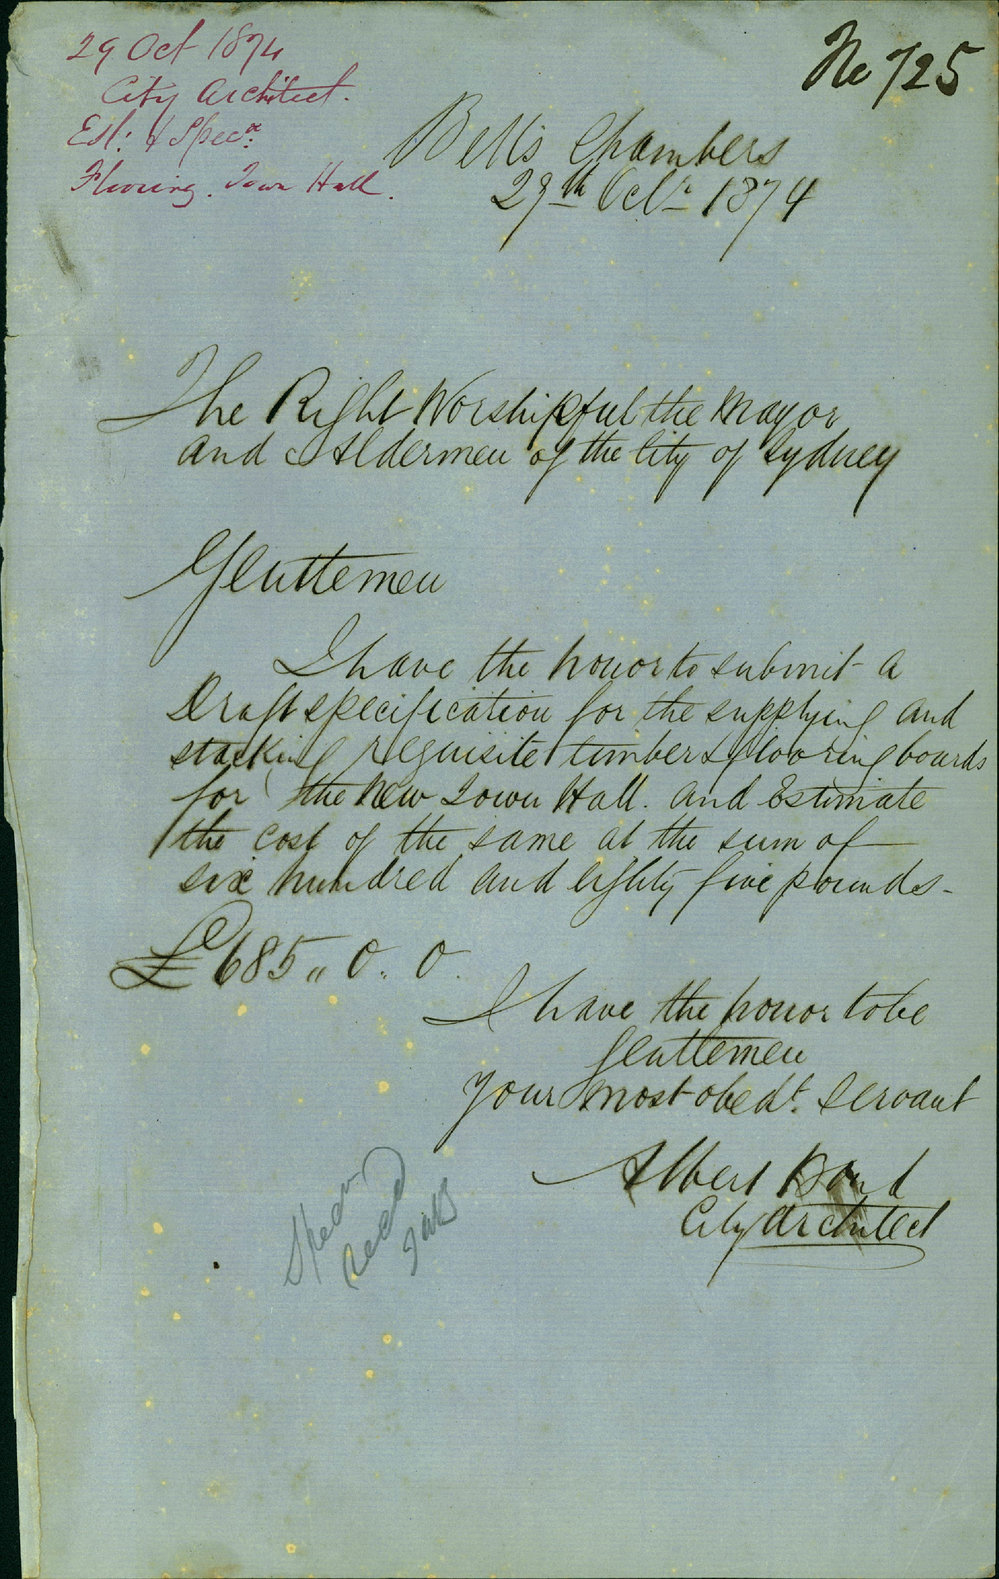 29 Oct 1874
City Architect.
Est: & Specn:
Flooring. Town Hall.
No 725
Bells Chambers
29th Octr 1874
The Right Worshipful the Mayor
and Aldermen of the City of Sydney
Gentlemen
I have the honor to submit a
Draft specification for the supplying and
stacking requisite timbers flooring boards
for the New Town Hall. and Estimate
the cost of the same at the sum of
six hundred and eighty five pounds-
£685,, 0. 0.
I have the honor to be
Gentlemen
Your most obedt. Servant
Albert Bond
City Architect
Specn
recd